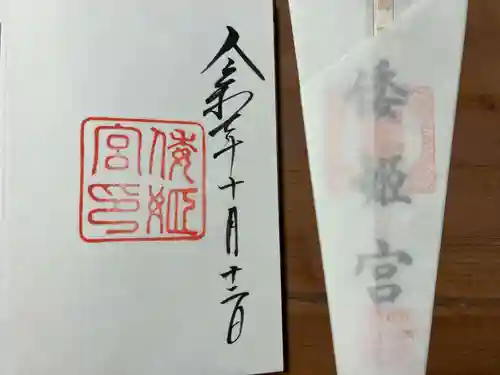 令和七年十月十二日
倭姫
宮印
倭姫宮